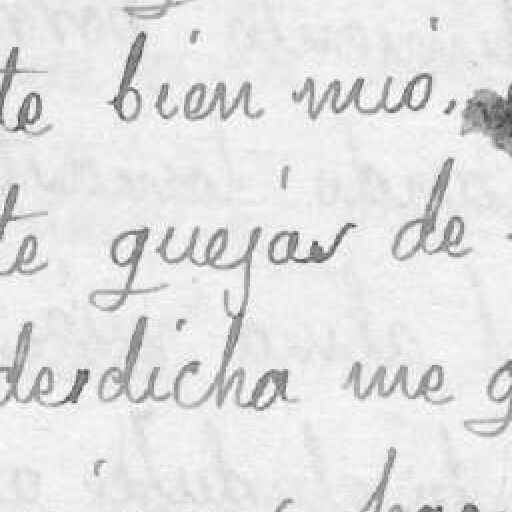 te bien mio.
te quejas de
desdicha me